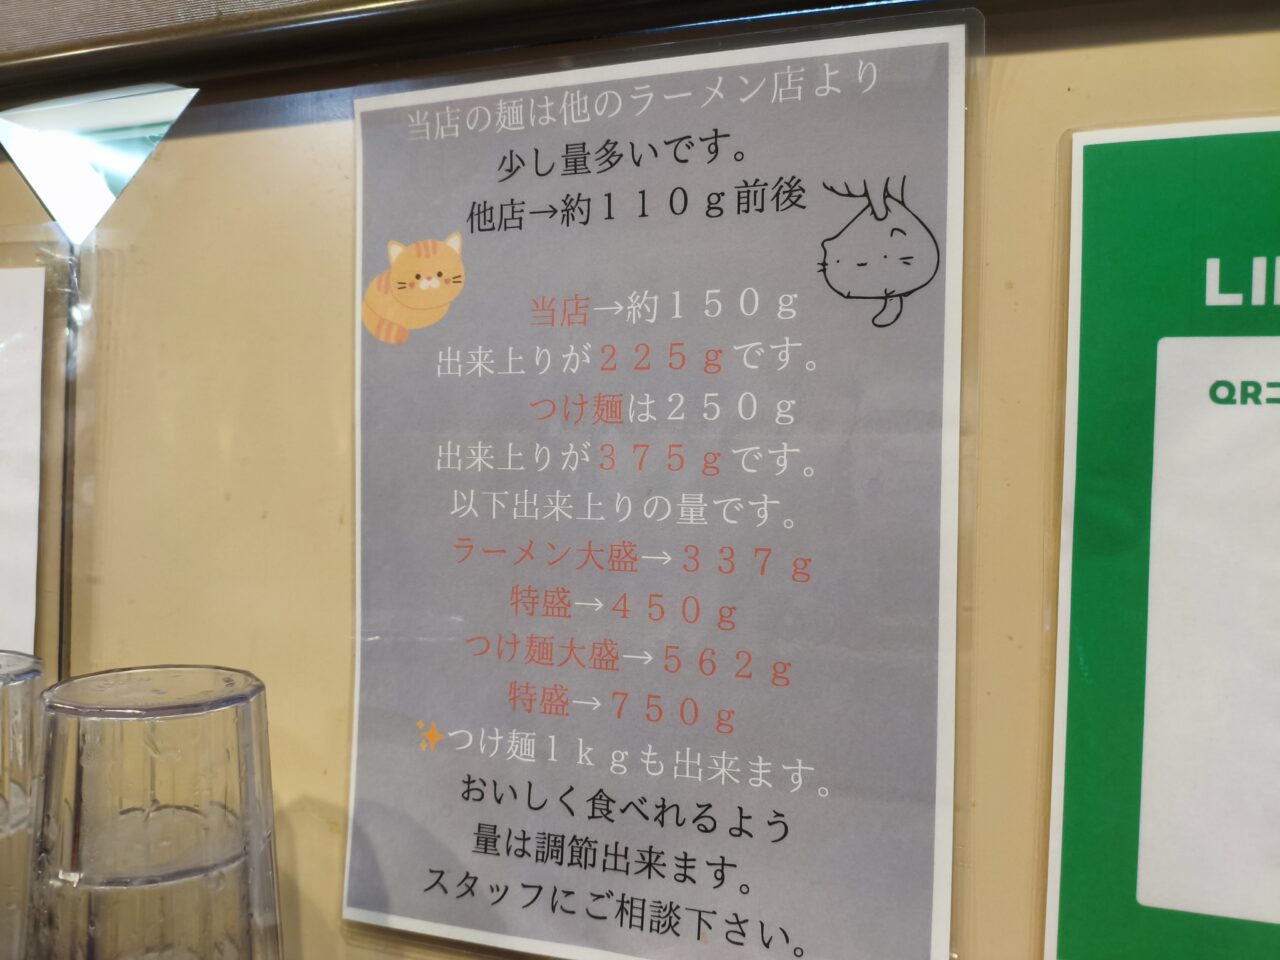 当店の麺は他のラーメン店より
少し量多いです。
他店→約１１０ｇ前後
当店→約１５０ｇ
出来上りが２２５ｇです。
つけ麺は２５０ｇ
出来上りが３７５ｇです。
以下出来上りの量です。
ラーメン大盛→３３７ｇ
特盛→４５０ｇ
つけ麺大盛→５６２ｇ
特盛→７５０ｇ
✨つけ麺１ｋｇも出来ます。
おいしく食べれるよう
量は調節出来ます。
スタッフにご相談下さい。
QRコ